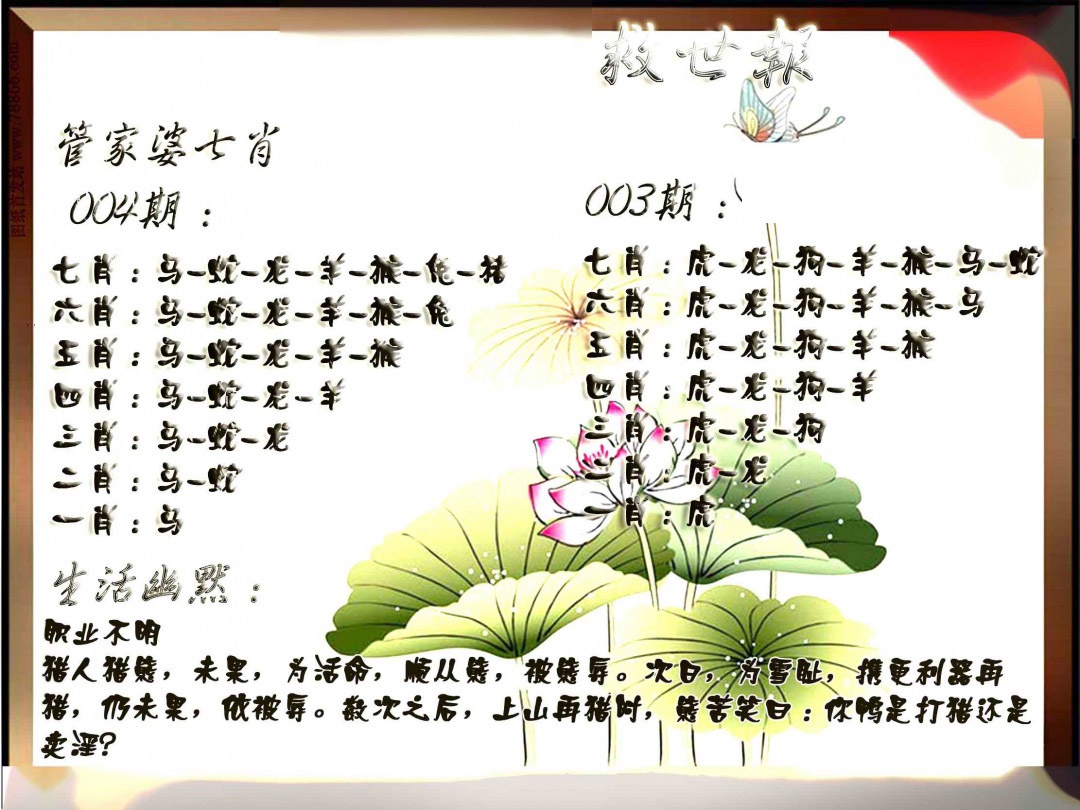 救世報
管家婆七肖
004期：
七肖：马-蛇-龙-羊-猴-兔-猪
六肖：马-蛇-龙-羊-猴-兔
五肖：马-蛇-龙-羊-猴
四肖：马-蛇-龙-羊
三肖：马-蛇-龙
二肖：马-蛇
一肖：马
003期：
七肖：虎-龙-狗-羊-猴-马-蛇
六肖：虎-龙-狗-羊-猴-马
五肖：虎-龙-狗-羊-猴
四肖：虎-龙-狗-羊
三肖：虎-龙-狗
二肖：虎-龙
一肖：虎
生活幽默：
职业不明
猎人猎熊，未果，为活命，顺从熊，被熊辱。次日，为雪耻，携更利器再
猎，仍未果，依被辱。数次之后，上山再猎时，熊苦笑曰：你鸭是打猎还是
卖淫？
图纸首发站 www.78866.com